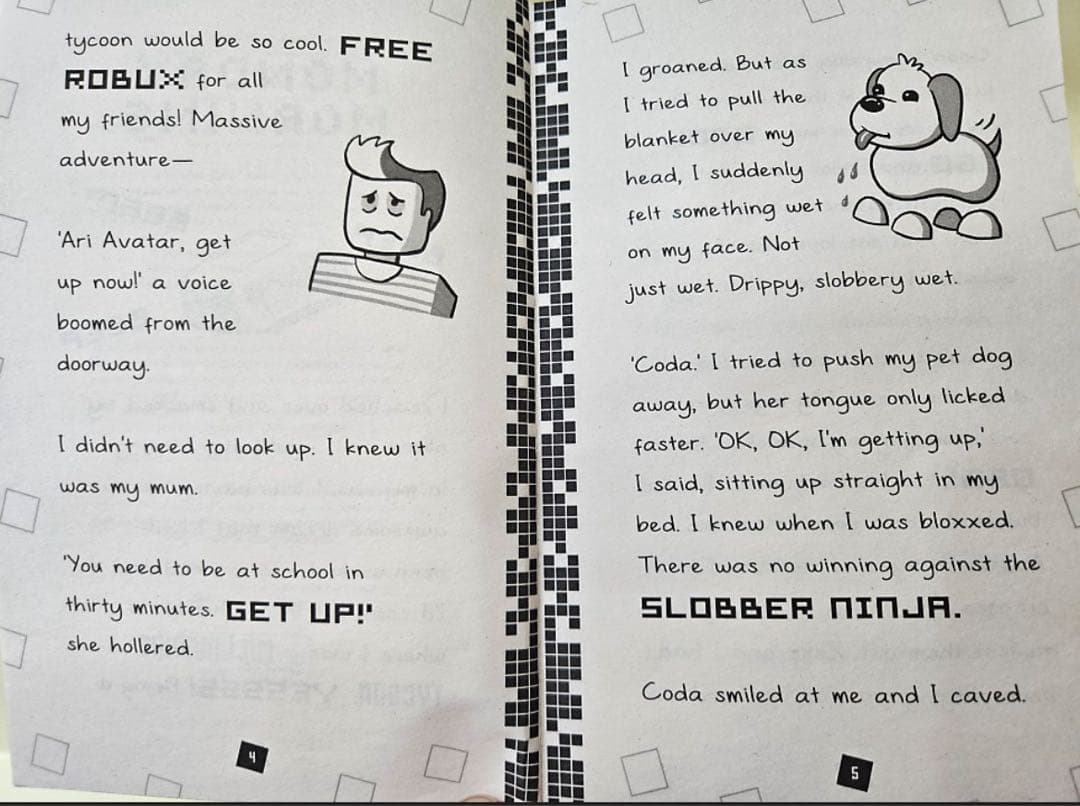 tycoon would be so cool. FREE
ROBUX for all
my friends! Massive
adventure—
'Ari Avatar, get
up now!' a voice
boomed from the
doorway.
I didn't need to look up. I knew it
was my mum.
'You need to be at school in
thirty minutes. GET UP!'
she hollered.
4
I groaned. But as
I tried to pull the
blanket over my
head, I suddenly
felt something wet
on my face. Not
just wet. Drippy, slobbery wet.
'Coda.' I tried to push my pet dog
away, but her tongue only licked
faster. 'OK, OK, I'm getting up,'
I said, sitting up straight in my
bed. I knew when I was bloxxed.
There was no winning against the
SLOBBER NINJA.
Coda smiled at me and I caved.
5